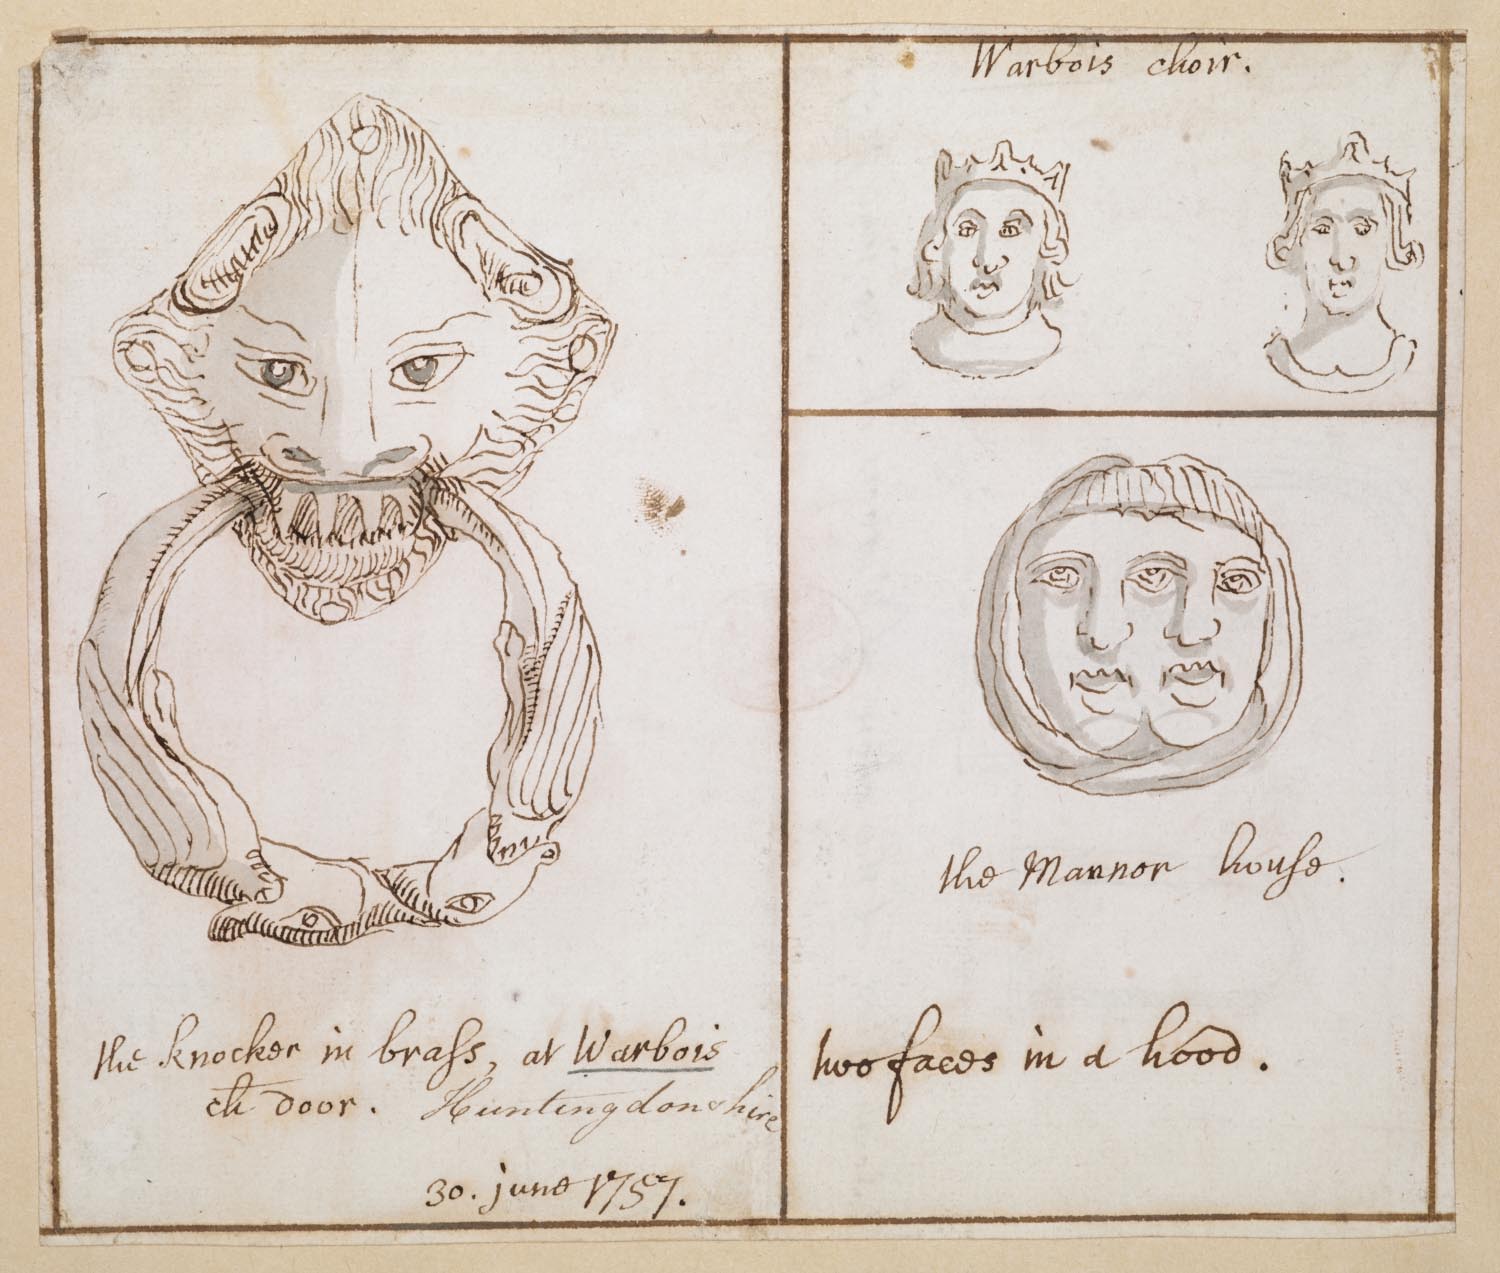 Warbois choir.
the Mannor house.
the knocker in brass, at Warbois
ch door. Huntingdonshire
30. june 1757.
two faces in a hood.